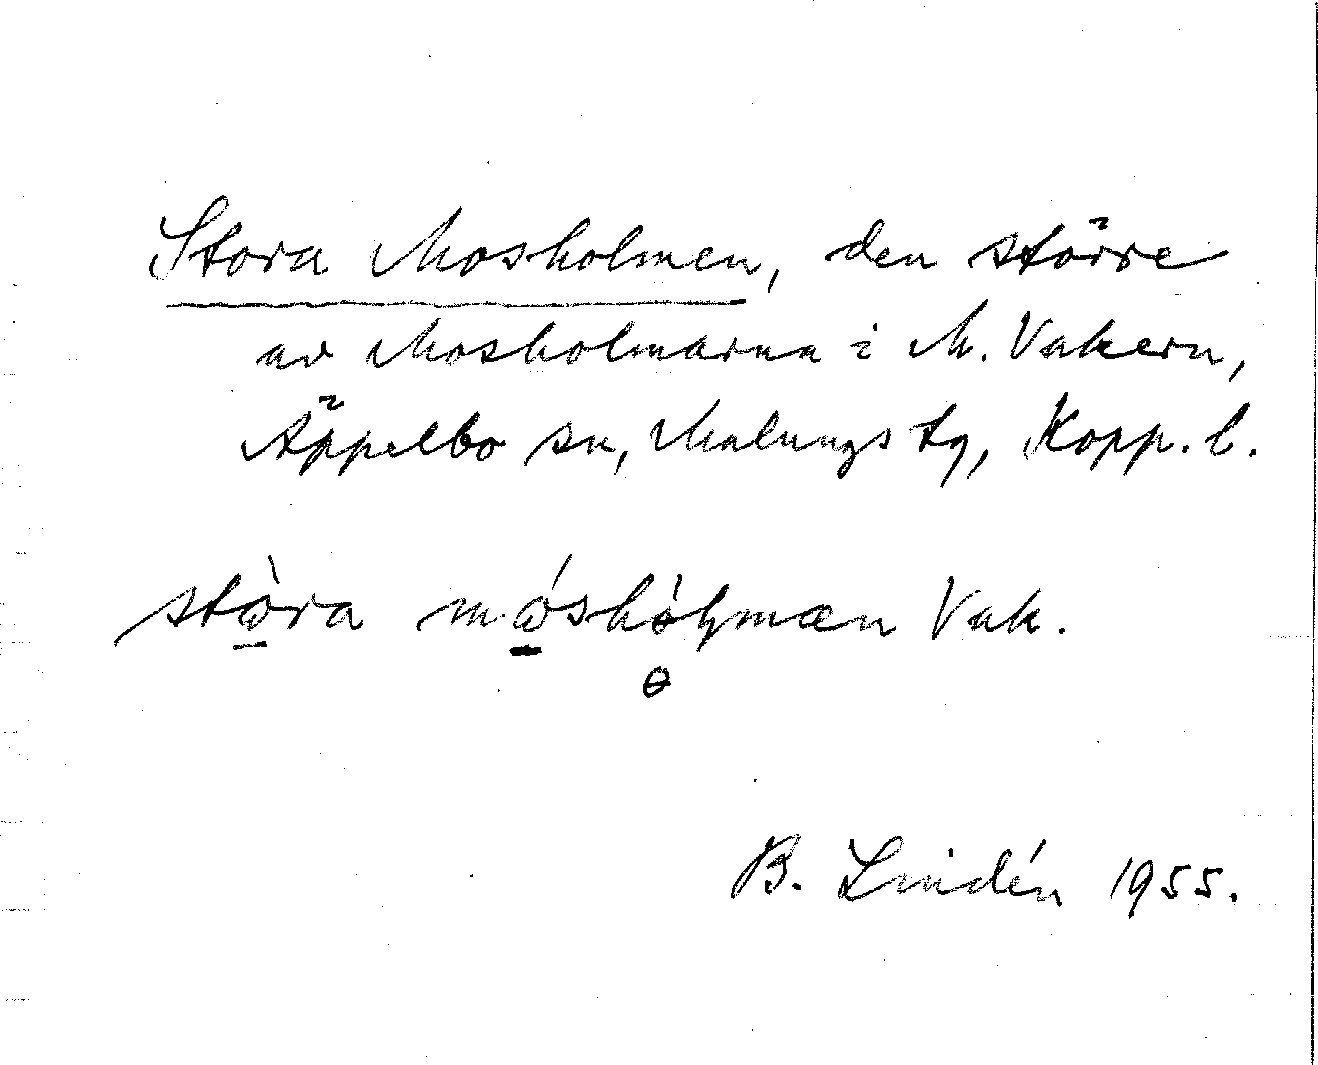 Stora Mosholmen, den större
av Mosholmarna i M. Vakern,
Äppelbo sn, Malungs tg, Kopp. l.
stὼra mώshólmæn Vak.
ɵ
B. Lindén 1955.